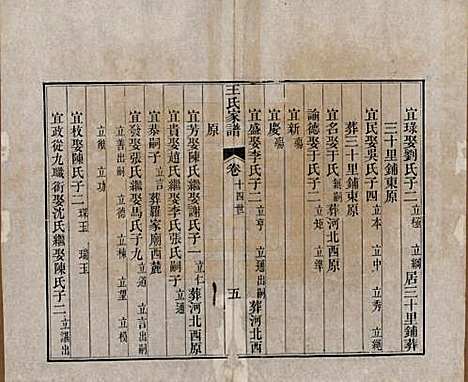 宜琭娶劉氏子二 立極 立綱 居三十里鋪葬
三十里鋪東原
宜民娶吳氏子四 立本 立中 立秀 立
葬三十里鋪東原
宜名娶于氏子一 葬河北西原
諭德娶于氏子二 立矩 立準
宜新 殤
宜慶 殤
宜盛娶李氏子二 立亨 立通出嗣 葬河北西
王氏家譜 卷 十四世 五
原
宜芳娶陳氏繼娶謝氏子一 立仁 葬河北西原
宜貴娶趙氏繼娶李氏張氏嗣子 立通
宜泰嗣子 立言 葬羅家廟西麓
宜發娶張氏繼娶馬氏子九 立道 立言出嗣
立善出嗣 立德 立棟 立望 立模
立徵 立功
宜枚娶陳氏子二 琛玉 瑞玉
宜政從九職銜娶沈氏繼娶陳氏子二 立湛出